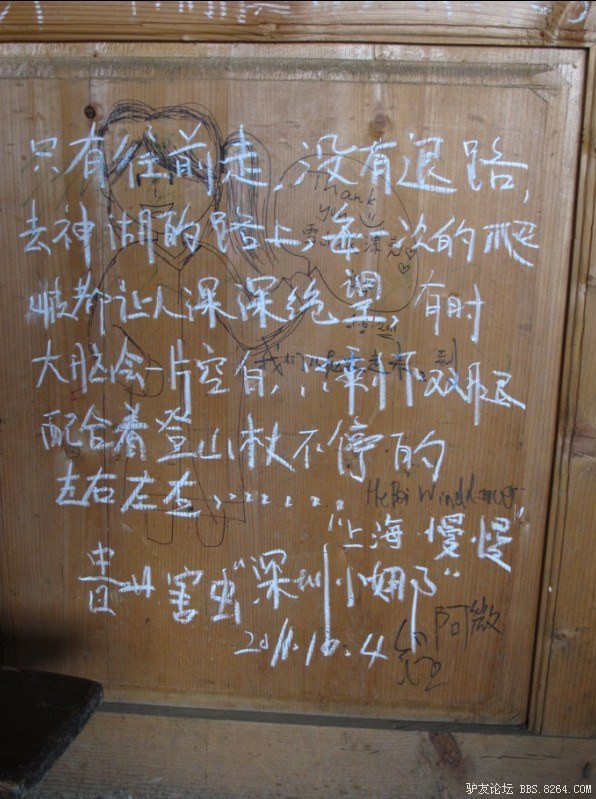 只有往前走,没有退路,
去神湖的路上,每一次的爬
坡都让人深深绝望,有时
大脑会一片空白,只剩下双腿
配合着登山杖不停的
左右左右、、、、、、、、
"上海 慢慢"
贵州害虫"深圳小娜"
2011.10.4
Thank
you
阿微
驴友论坛 BBS.8264.COM